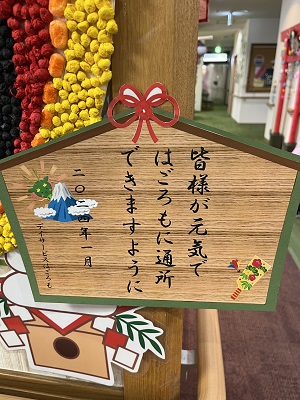 皆様が元気で
はごろもに通所
できますように
二〇二四年一月
デイサービスはごろも